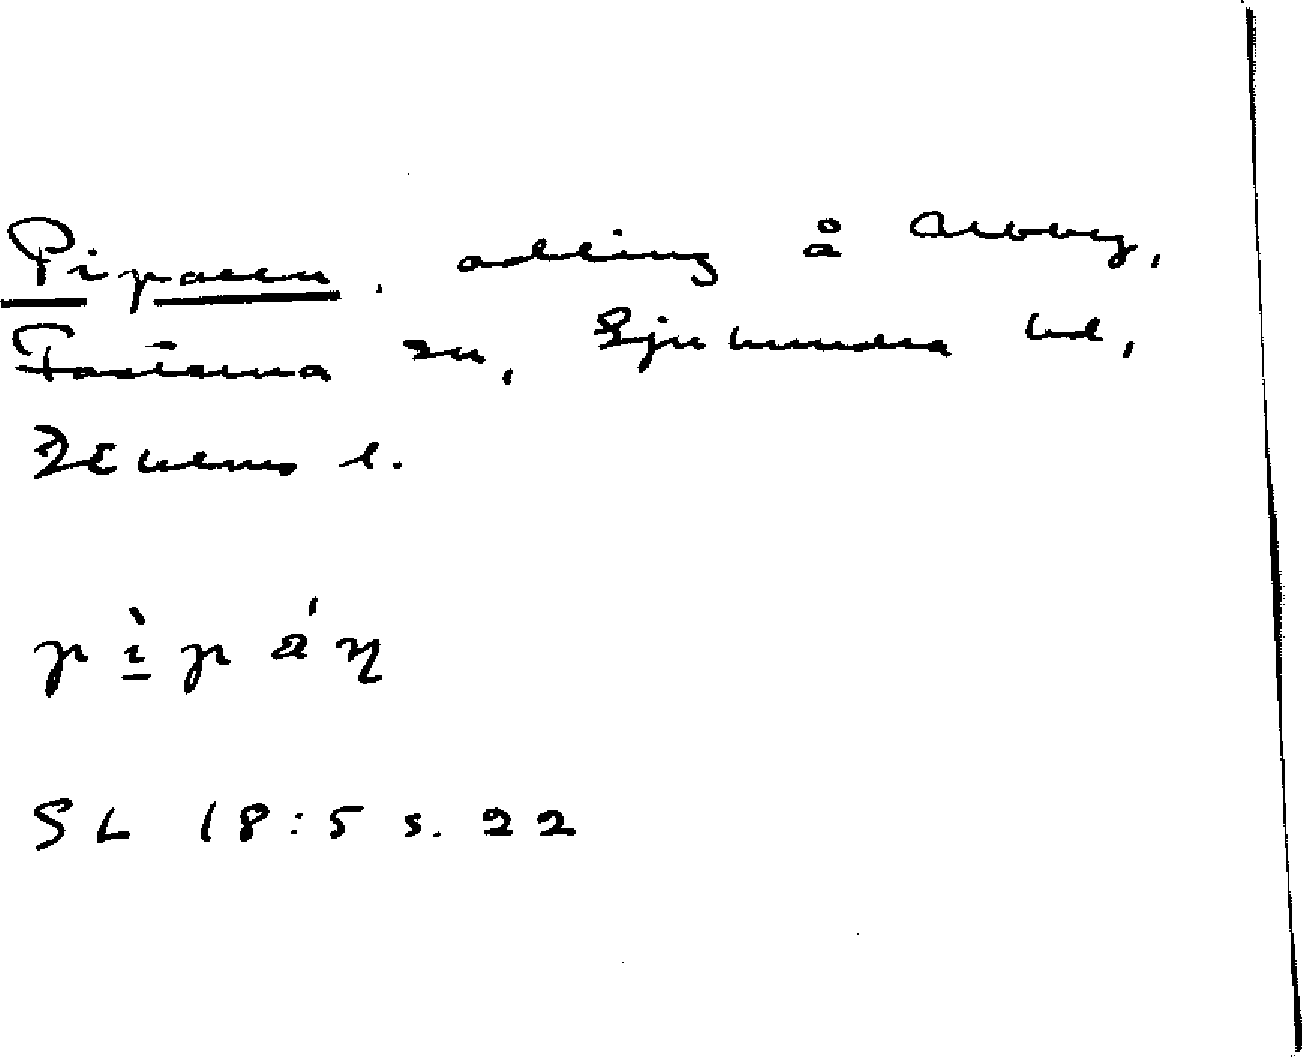 Piparen. adling å Arboy,
Fasterna sn, Sjuhundra hd,
Sthlms l.
p ì p á ŋ
SL 18:5 s. 22